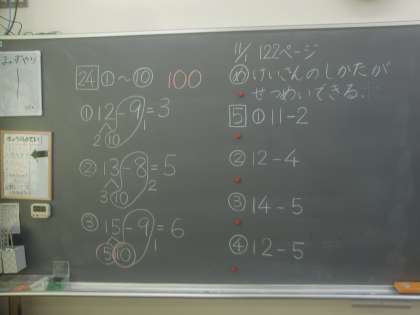 24 ①~⑩ 100
① 12-9=3
2 10 1
② 13-8=5
3 10 2
③ 15-9=6
5 10 1
11/1 122ページ
め けいさんのしかたが
せつめいできる。
5 ① 11-2
② 12-4
③ 14-5
④ 12-5